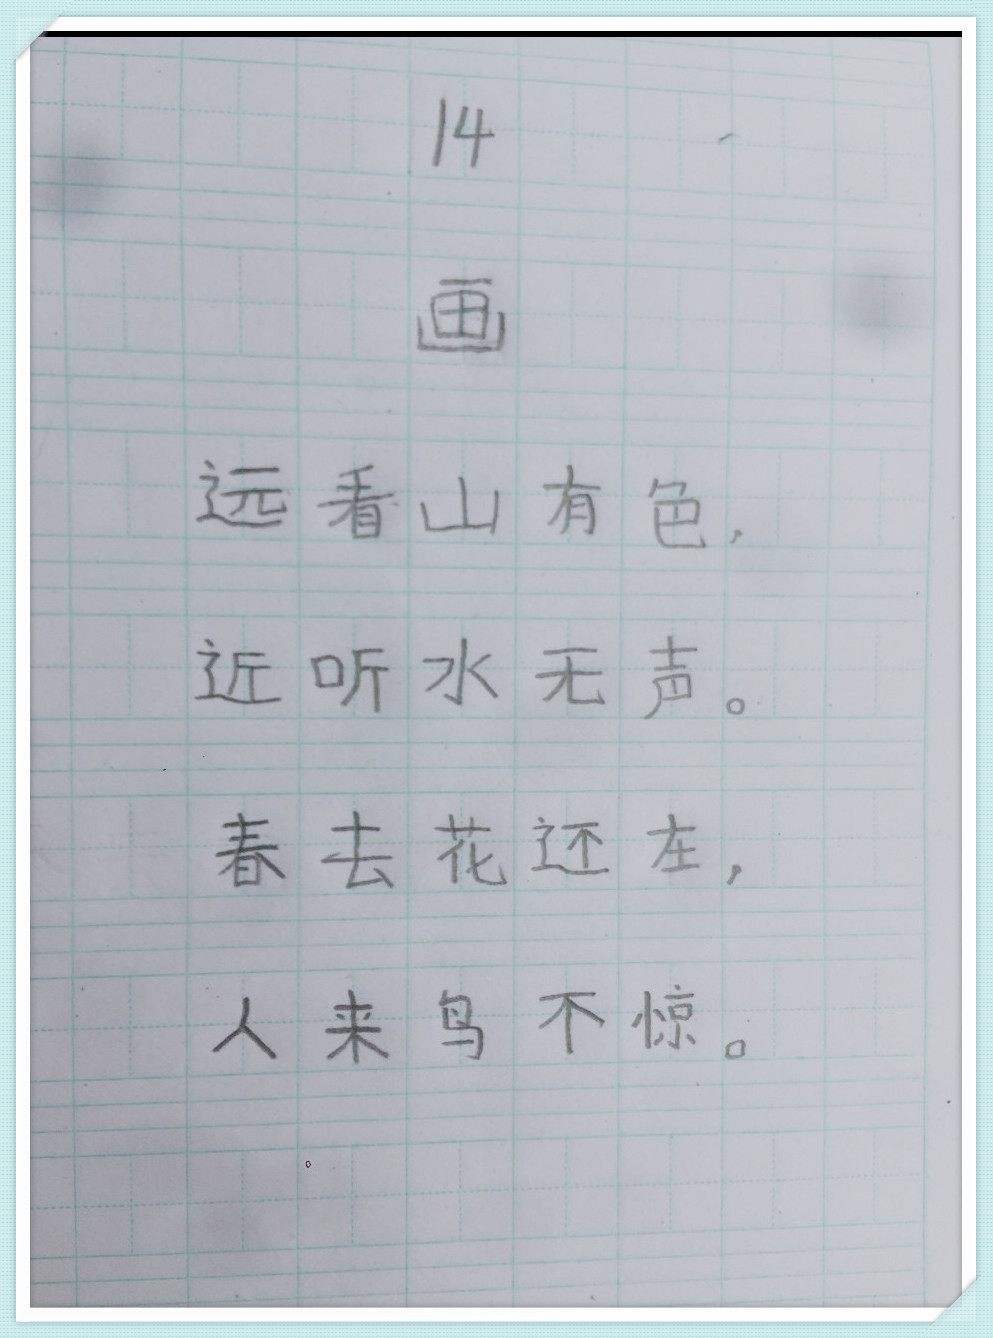 14
画
远看山有色，
近听水无声。
春去花还左，
人来鸟不惊。